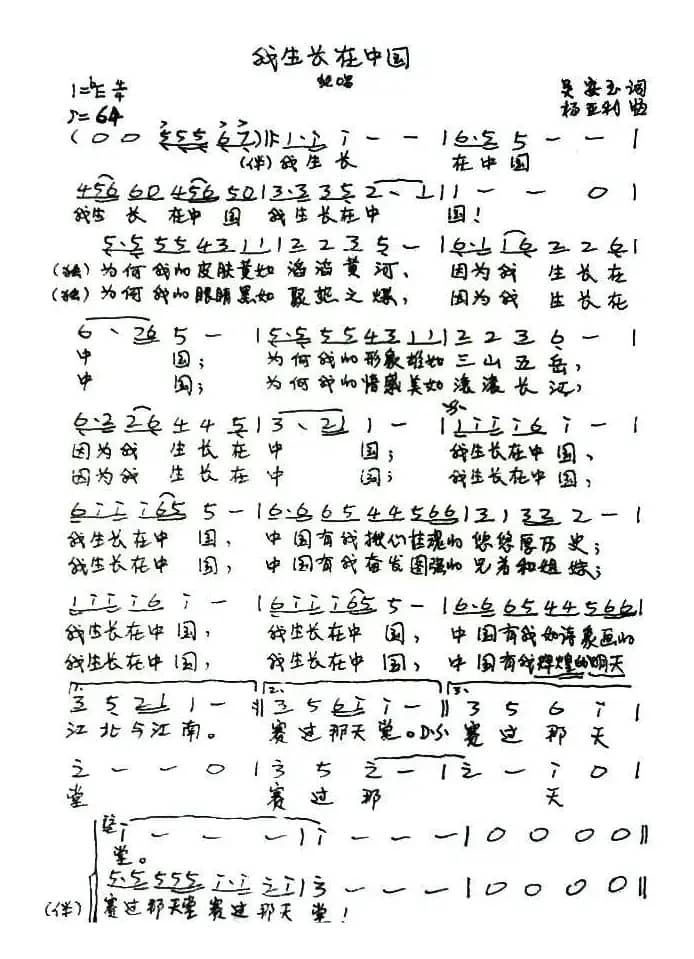 我生长在中国
吴安玉 词
1=♭E 4/4
♩=64
杨亚利
(0 0 5 5 5 6 7)‖: 1·1 1 - - | 6·5 5 - - |
(伴)我生长 在中国
4 5 6 6 0 4 5 6 5 0 | 3·3 3 5 2、1 | 1 - - 0 |
我生长在中国 我生长在中 国!
5·5 5 5 4 3 1 1 | 2 2 3 5 - | 6·1 1 6 2 2 6 |
(独)为何我的皮肤黄如滔滔黄河, 因为我生长在
(独)为何我的眼睛黑如 之煤, 因为我生长在
6、2 6 5 - | 5·5 5 5 4 3 1 1 | 2 2 3 6 - |
中国; 为何我的形象雄如三山五岳,
中国; 为何我的情感美如滚滚长江,
6·2 2 6 4 4 5 | 3、2 1 1 - | 1 1 1 1 6 1 - |
因为我生长在中国; 我生长在中国,
因为我生长在中国; 我生长在中国,
6 1 1 1 6 5 5 - | 6·6 6 5 4 4 5 6 6 | 3 1 3 3 2 - |
我生长在中国, 中国有我 魂的悠悠历史;
我生长在中国, 中国有我奋发图强的兄弟和姐妹;
1 1 1 1 6 1 - | 6 1 1 1 6 5 5 - | 6·6 6 5 4 4 5 6 6 |
我生长在中国, 我生长在中国, 中国有我如诗象画的
我生长在中国, 我生长在中国, 中国有我辉煌的明天
1. 2. 3.
3 5 2 1 1 - :‖ 3 5 6 1 1 - ‖ 3 5 6 1 |
江北与江南。 赛过那天堂。D.S. 赛过那天
2 - - 0 | 3 5 2 - 1 | 2 - 1 0 |
堂 赛过那天
1 - - - | 1 - - - | 0 0 0 0 ‖
堂。
5·5 5 5 5 5 1·1 2 1 | 3 - - - | 0 0 0 0 ‖
(伴) 赛过那天堂赛过那天堂!